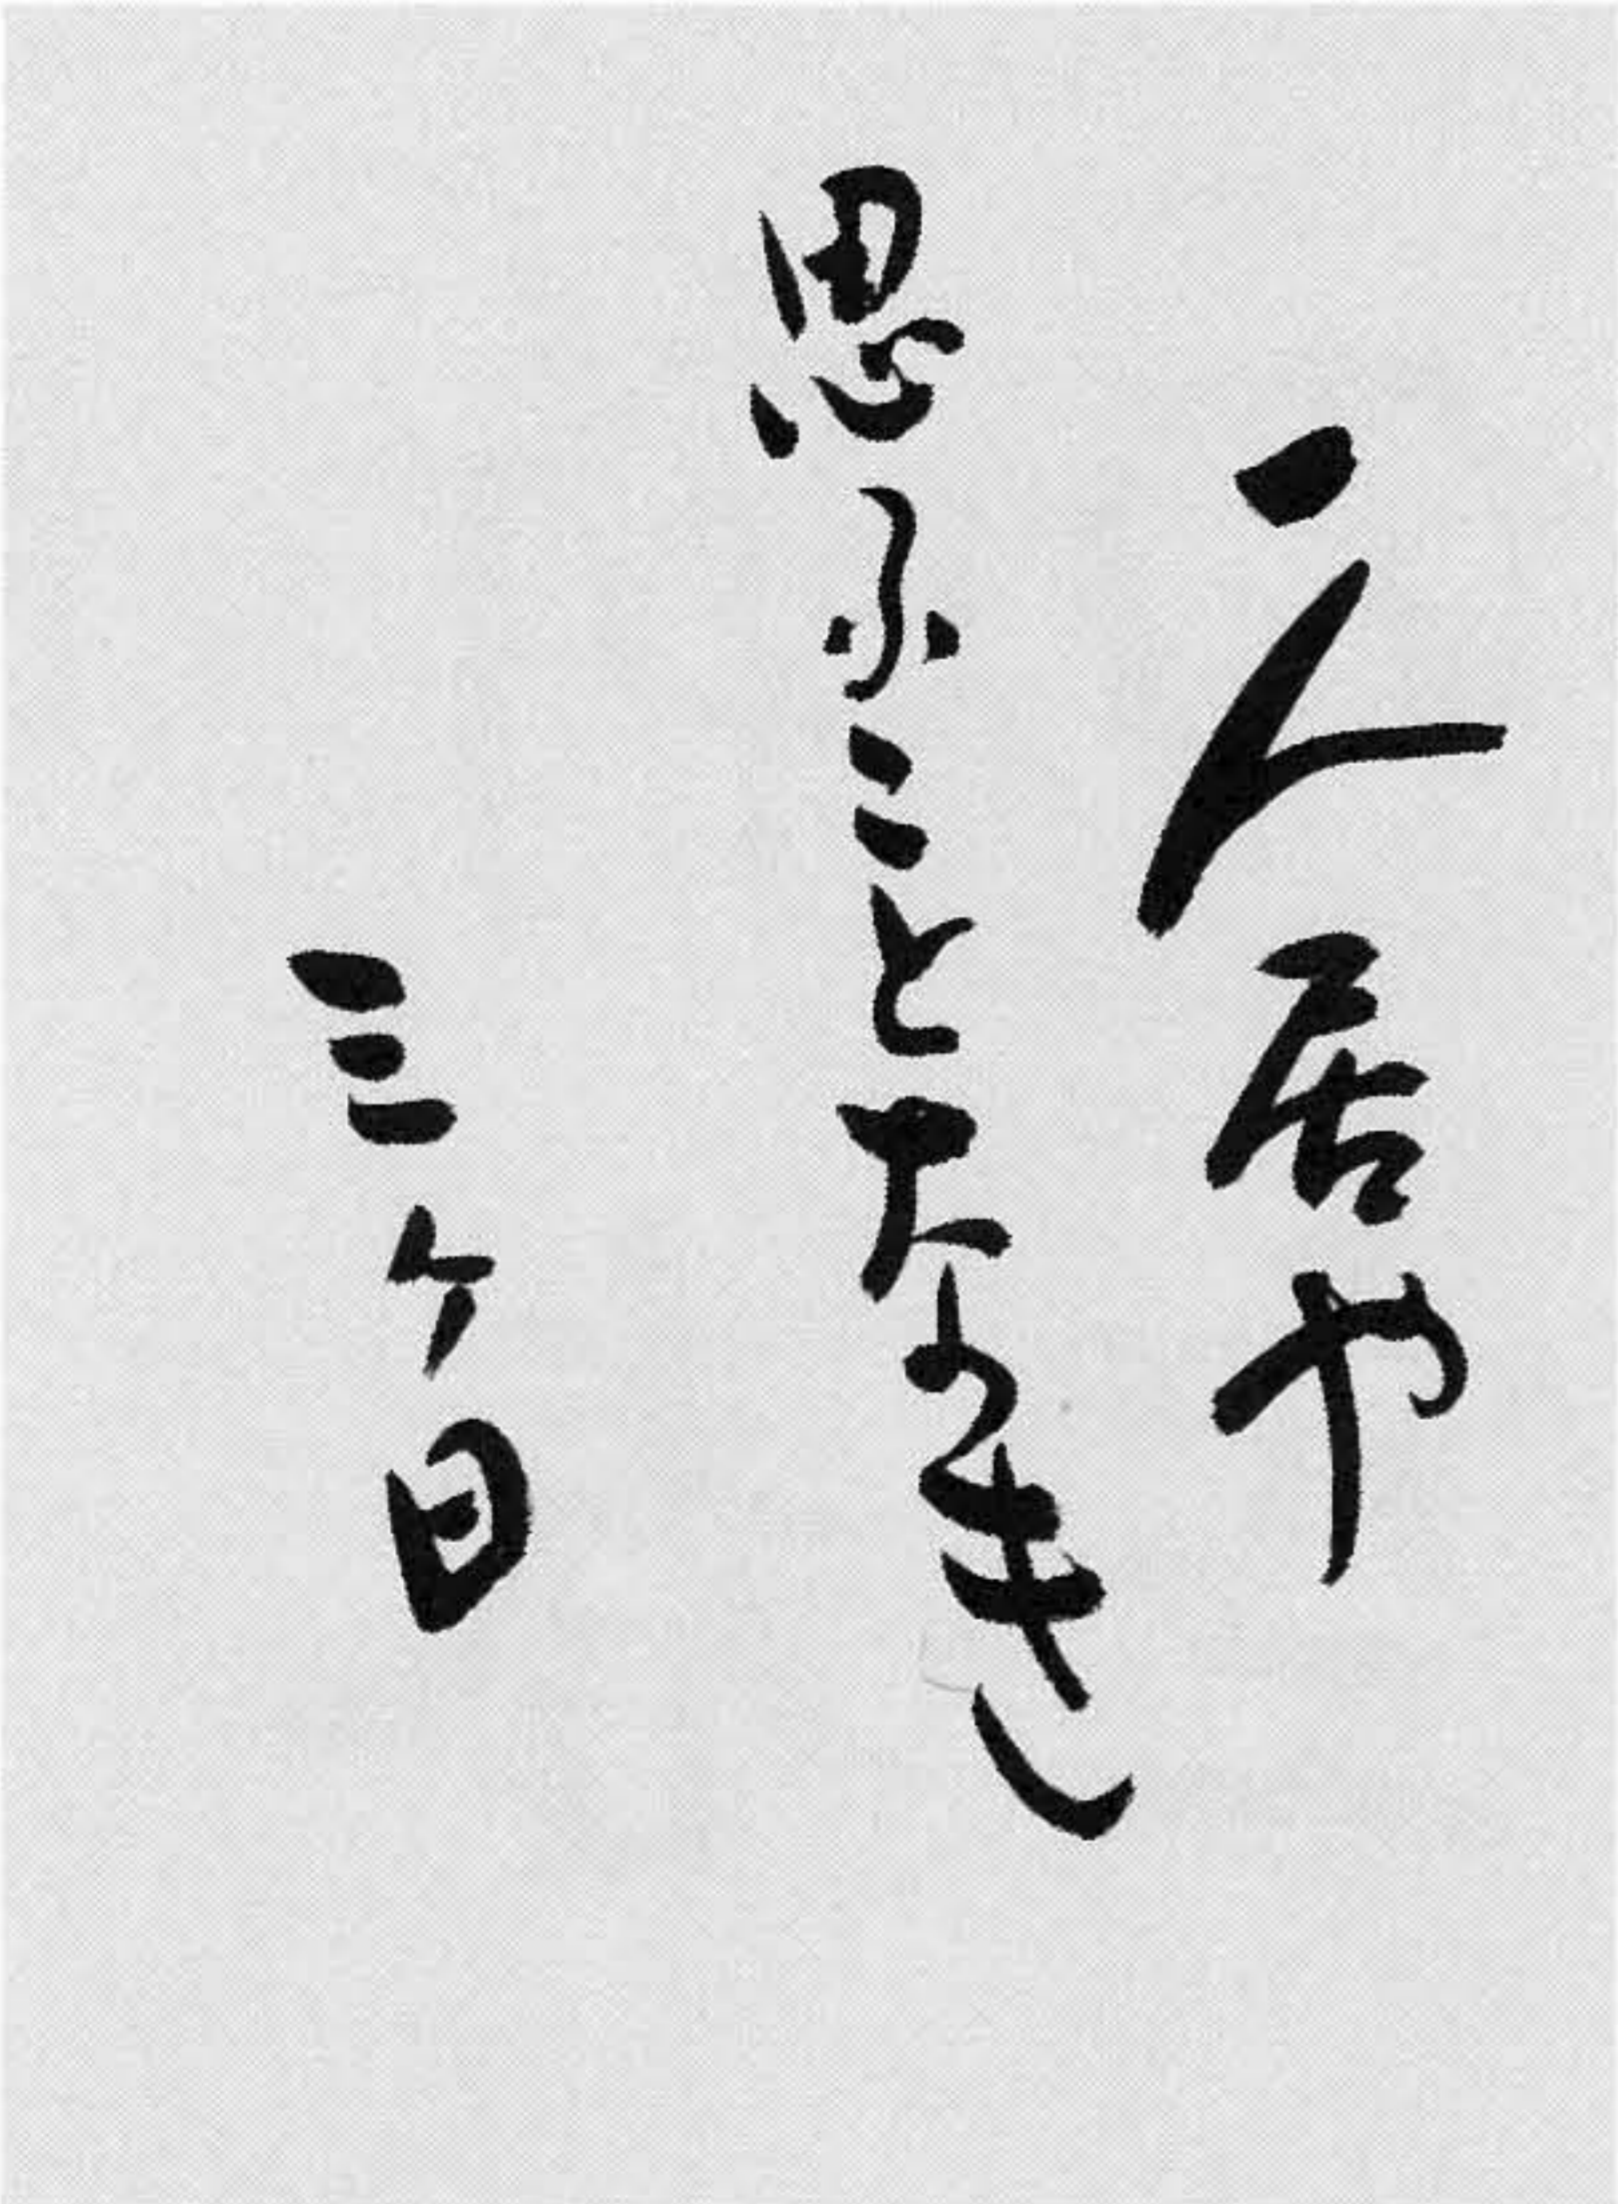 一人居や
思ふことなき
三ケ日